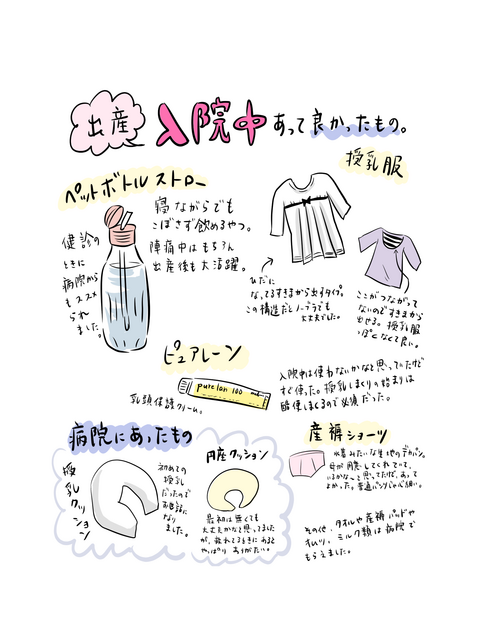 出産 入院中あって良かったもの。
授乳服
ペットボトルストロー
寝ながらでも
こぼさず飲めるやつ。
陣痛中はもちろん
出産後も大活躍。
健診の
ときに
病院から
もススメ
られ
ました。
ひだに
なってるすきまから出すタイプ。
この構造だとノーブラでも
大丈夫でした。
ここがつながって
ないのですきまから
出せる。授乳服
っぽくなくて良い。
ピュアレーン
purelan 100
乳頭保護クリーム。
入院中は使わないかなと思っていたけど
すぐ使った。授乳しまくりの始まりは
酷使しまくるので必須だった。
病院にあったもの
授乳クッション
初めての
授乳
だったので
お世話に
なり
ました。
円座クッション
最初は無くても
大丈夫かなと思ってました
が、疲れてるときにあると
やっぱりありがたい。
産褥ショーツ
水着みたいな生地のデカパン。
母が用意してくれてて、
いるかな〜と思ってたけど、あって
よかった。普通パンツじゃ心細い。
その他、タオルや産褥パッドや
オムツ、ミルク類は病院で
もらえました。